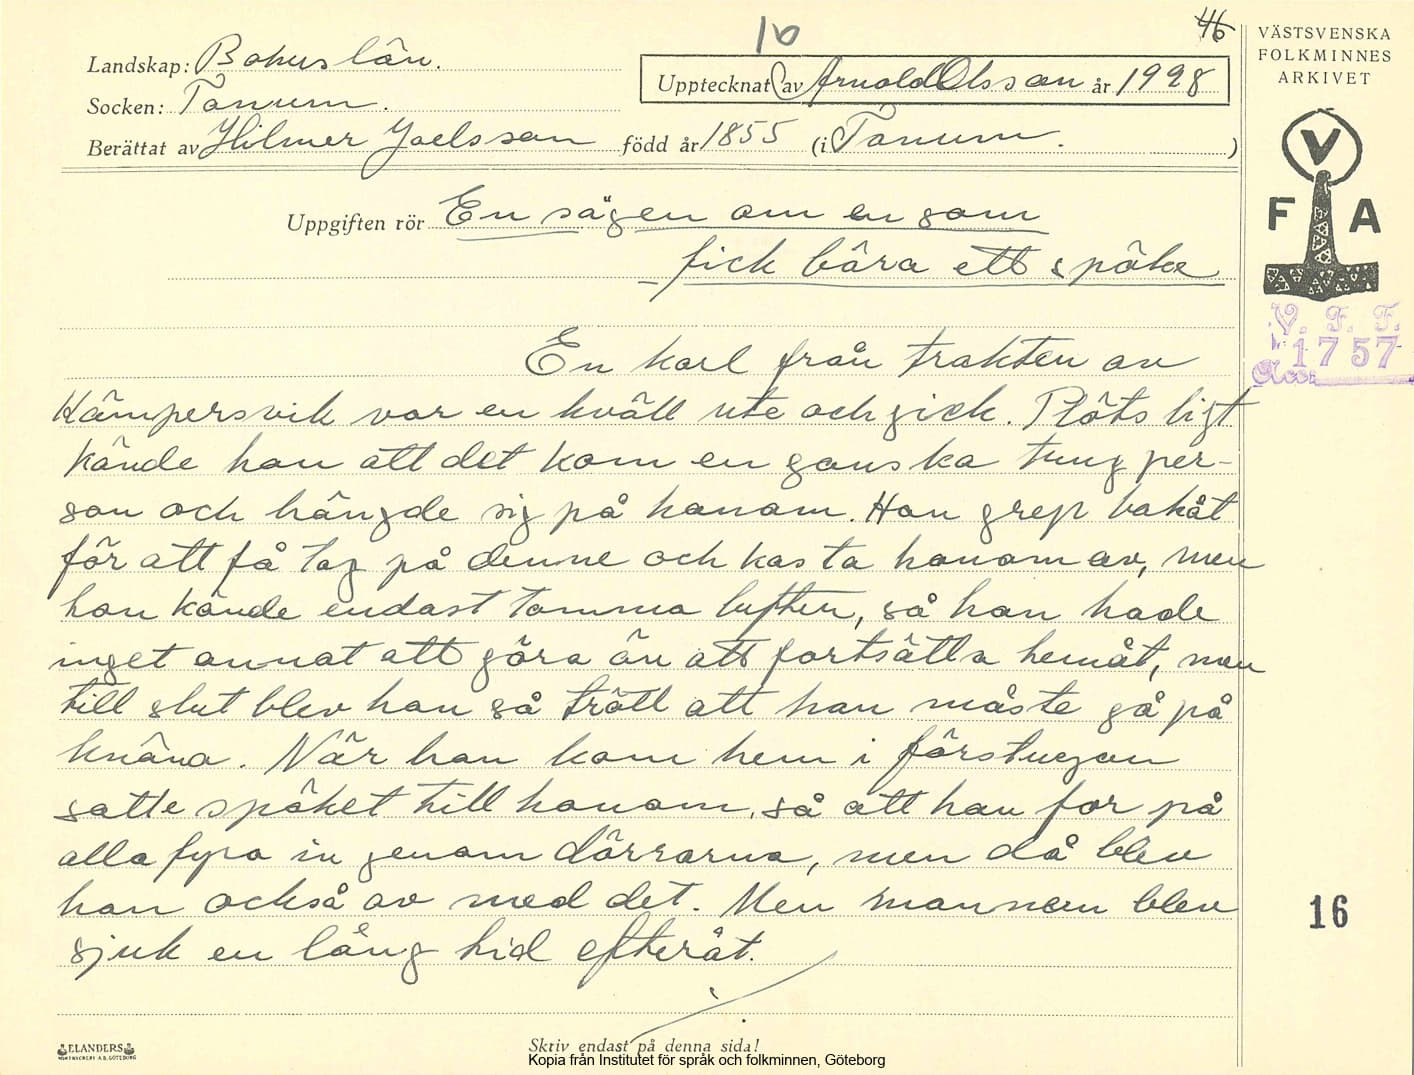 16
46
VÄSTSVENSKA
FOLKMINNES
ARKIVET
Landskap: Bohuslän.
Upptecknat av Arnold Olsson år 1928
Socken: Tanum.
Berättat av Hilmer Joelsson född år 1855 (i Tanum. )
V
F A
Uppgiften rör En sägen om en som
fick bära ett spöke
V. F. F.
1757
Acc.
En karl från trakten av
Kämpersvik var en kväll ute och gick. Plötsligt
kände han att det kom en ganska tung per-
son och hängde sig på honom. Han grep bakåt
för att få tag på denne och kasta honom av, men
han kände endast tomma luften, så han hade
inget annat att göra än att fortsätta hemåt, men
till slut blev han så trött att han måste gå på
knäna. När han kom hem i förstugan
satte spöket till honom, så att han for på
alla fyra in genom dörrarna, men då blev
han också av med det. Men mannen blev
sjuk en lång tid efteråt.
16
ELANDERS
Skriv endast på denna sida!
Kopia från Institutet för språk och folkminnen, Göteborg